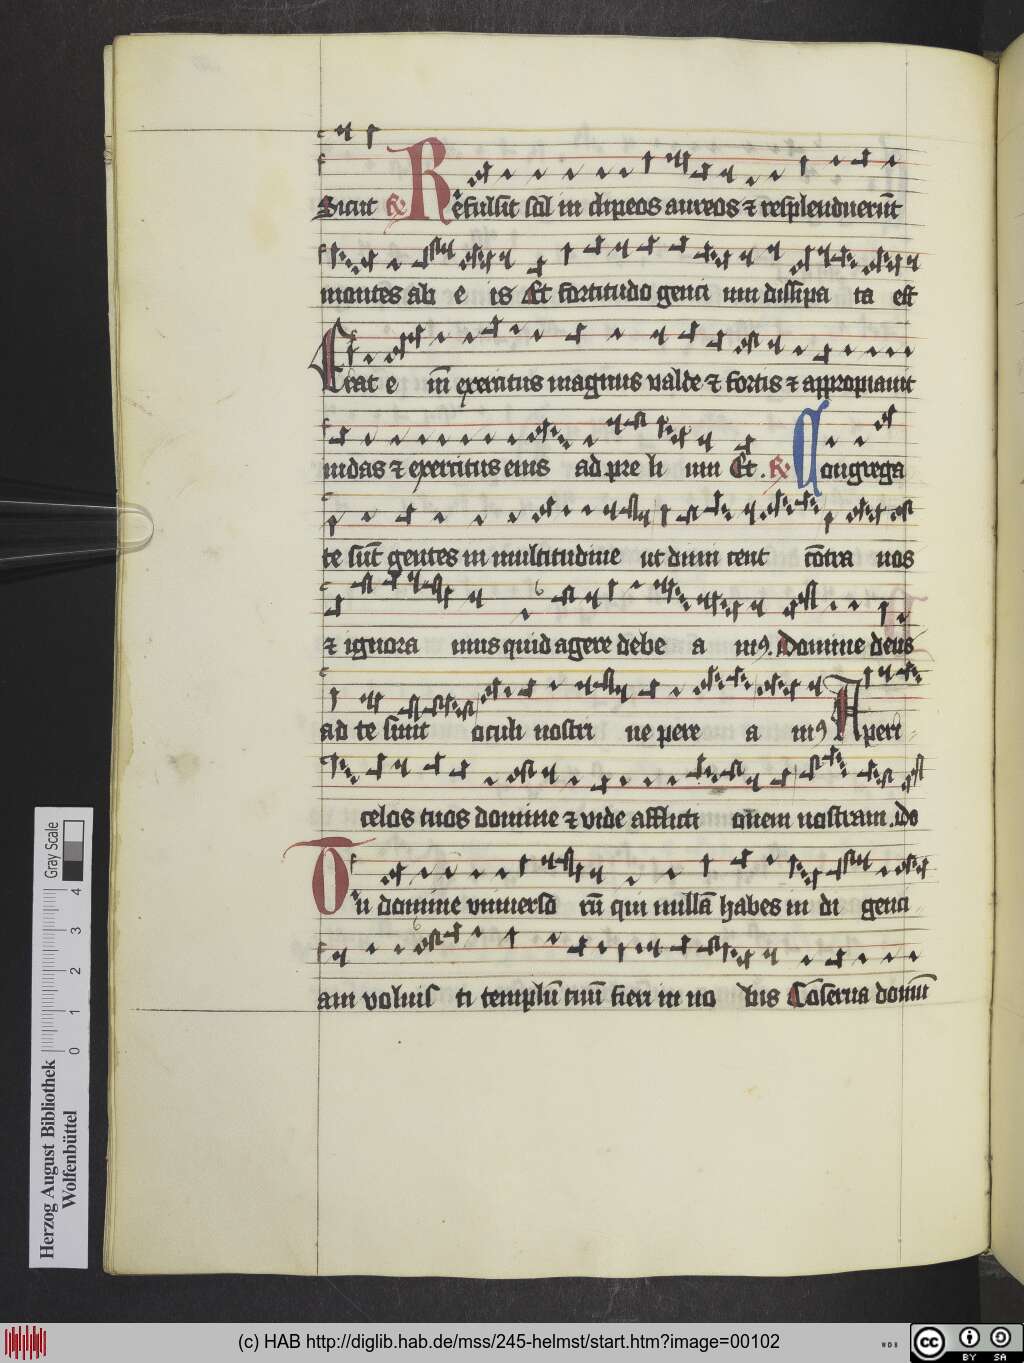 Sicut R Refulsit sol in clipeos aureos ⁊ resplenduerūt
montes ab e is Et fortitudo genci um dissipa ta est
Erat e im̄ exercitus magnus valde ⁊ fortis ⁊ appropiauit
iudas ⁊ exercitus eius ad pre li um Et . R Congrega
te sūt gentes in multitudine ut dimi cent cōtra nos
⁊ ignora mus quid agere debe a mꝰ. Domine deus
ad te sunt oculi nostri ne pere a mꝰ Aperi
celos tuos domine ⁊ vide afflicti onem nostram .Do
Tu domine vniuerso rū qui nullā habes in di genci
am voluis ti templū tuū fieri in no bis Cōserua domū
Herzog August Bibliothek
Wolfenbüttel
Gray Scale
0 1 2 3 4
(c) HAB http://diglib.hab.de/mss/245-helmst/start.htm?image=00102
WDB
cc BY SA